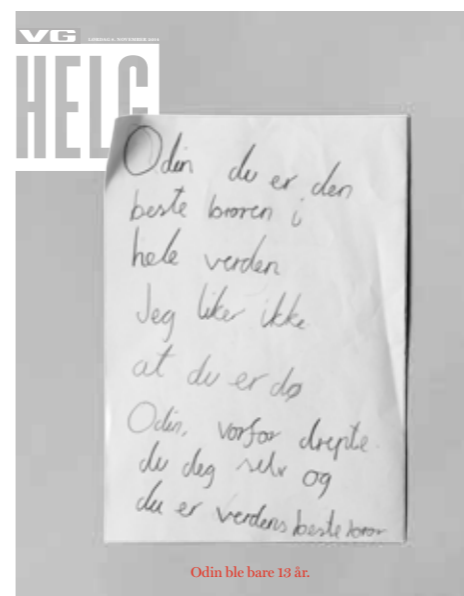 VG
HELG
Odin du er den
beste broren i
hele verden
Jeg liker ikke
at du er dø
Odin, vorfor drepte
du deg selv og
du er verdens beste bror
Odin ble bare 13 år.